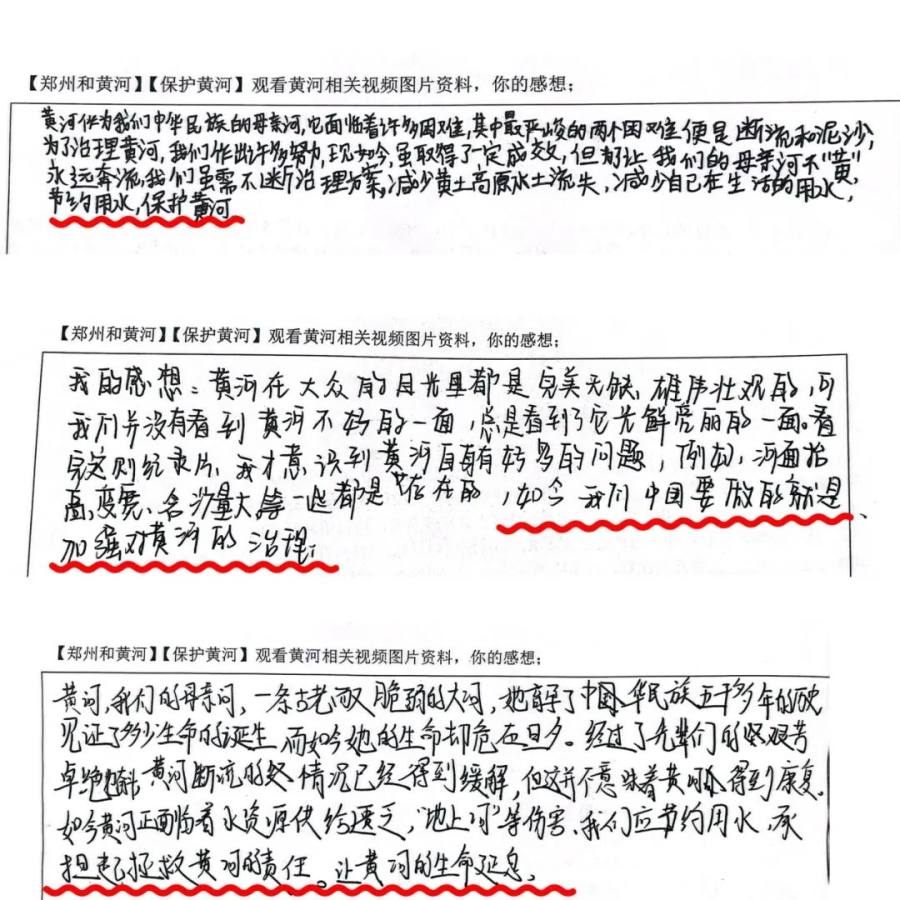 【郑州和黄河】【保护黄河】观看黄河相关视频图片资料，你的感想；
黄河作为我们中华民族的母亲河，它面临着许多困难，其中最严峻的两个困难便是断流和泥沙，
为了治理黄河，我们作出许多努力，现如今，虽取得了一定成效，但都让我们的母亲河不“黄”，
永远奔流，我们虽需不断治理方案，减少黄土高原水土流失，减少自己在生活的用水，
节约用水，保护黄河
【郑州和黄河】【保护黄河】观看黄河相关视频图片资料，你的感想；
我的感想：黄河在大众的目光里都是完美无缺，雄伟壮观的，可
我们并没有看到黄河不好的一面，总是看到了它光鲜亮丽的一面。看
完这则纪录片，我才意识到黄河自有好多的问题，例如，河面抬
高，变宽、含沙量大等一些都是存在的，如今我们中国要做的就是、
加强对黄河的治理。
【郑州和黄河】【保护黄河】观看黄河相关视频图片资料，你的感想；
黄河，我们的母亲河，一条古老而又脆弱的大河，她育孕了中国华民族五千多年的历史
见证了多少生命的诞生，而如今她的生命却危在旦夕。经过了先辈们的艰苦
卓绝，黄河断流的情况已经得到缓解，但这并不意味着黄河得到康复。
如今黄河正面临着水资源供给匮乏，“地上河”等伤害，我们应节约用水，承
担起拯救黄河的责任。让黄河的生命延息。